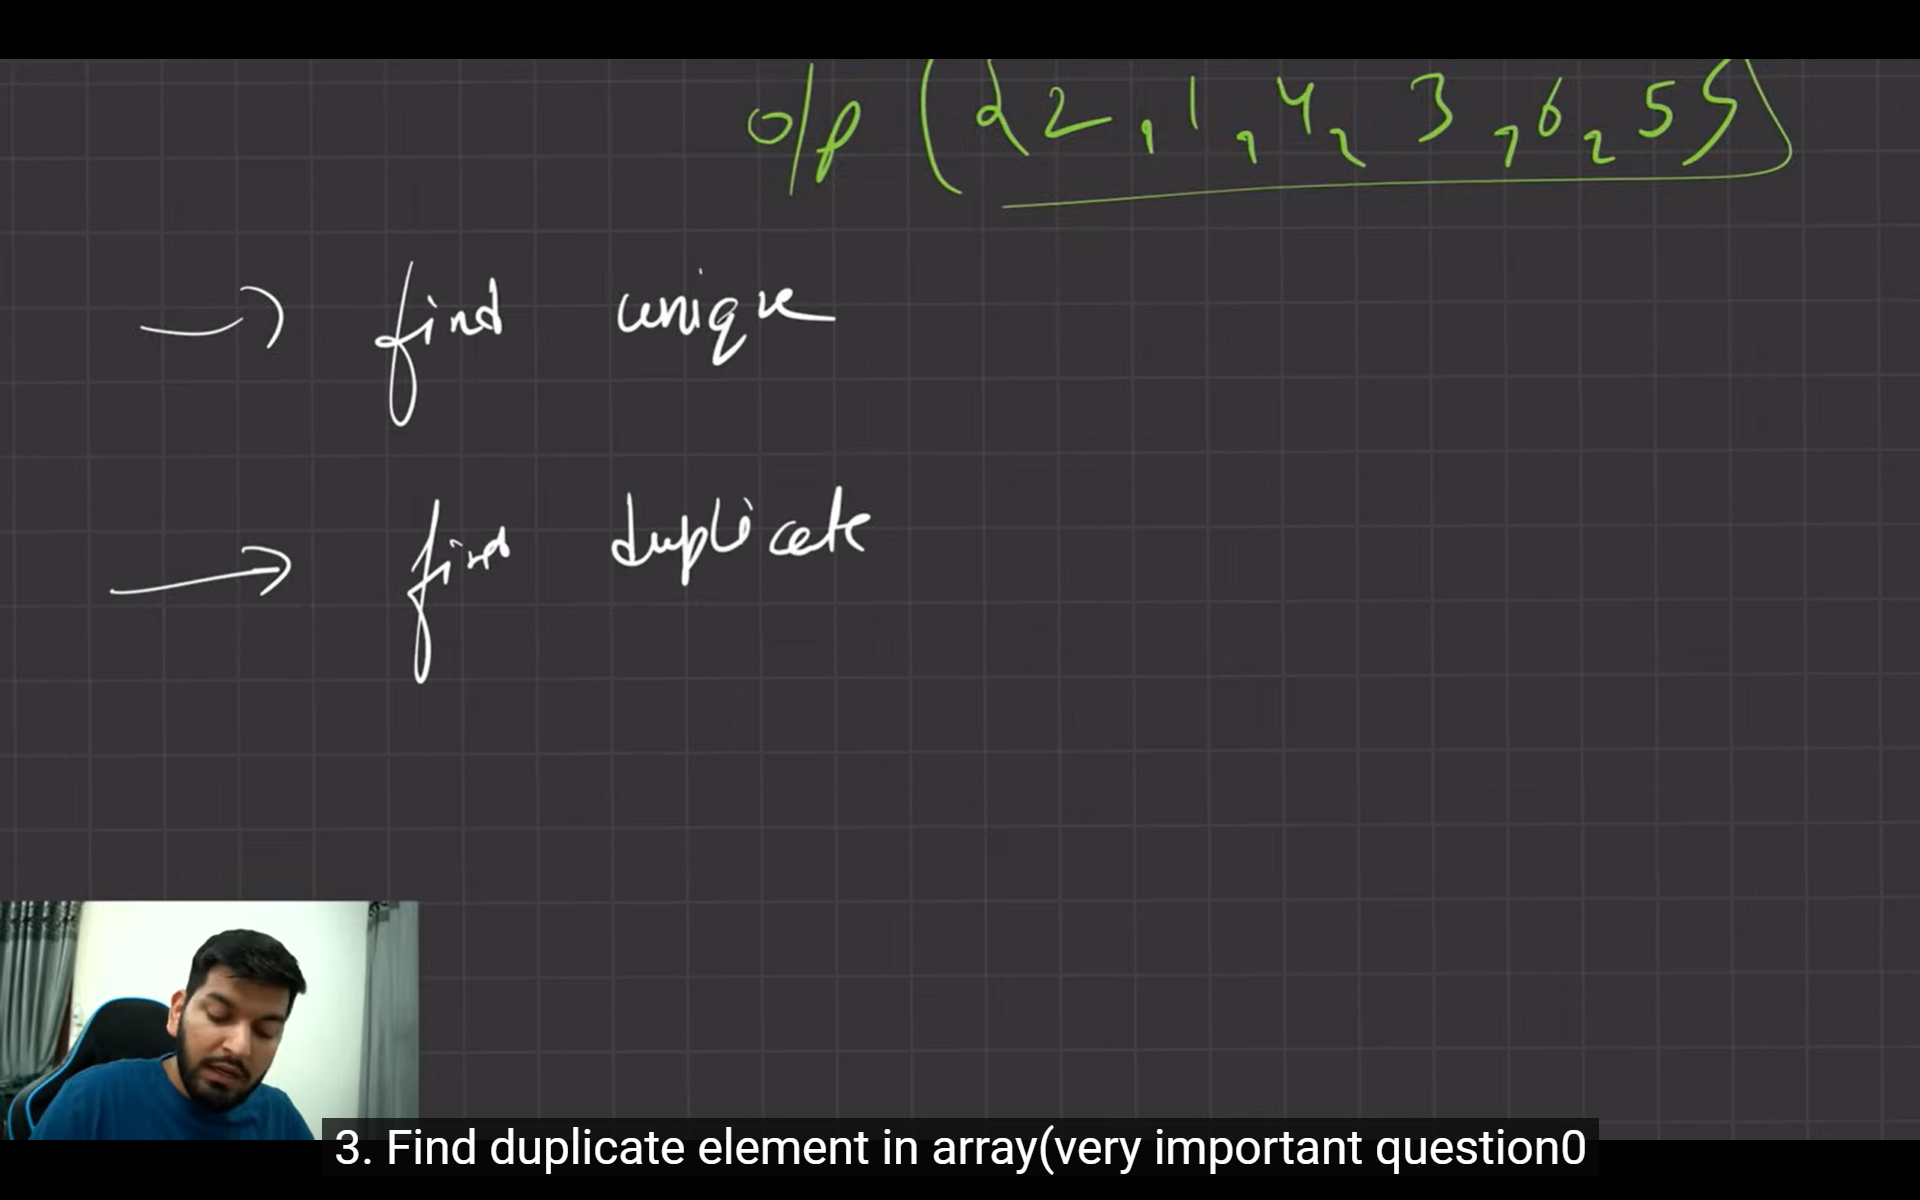 o/p ({2, 1, 4, 3, 6, 5}
→ find unique
→ find duplicate
3. Find duplicate element in array(very important question0